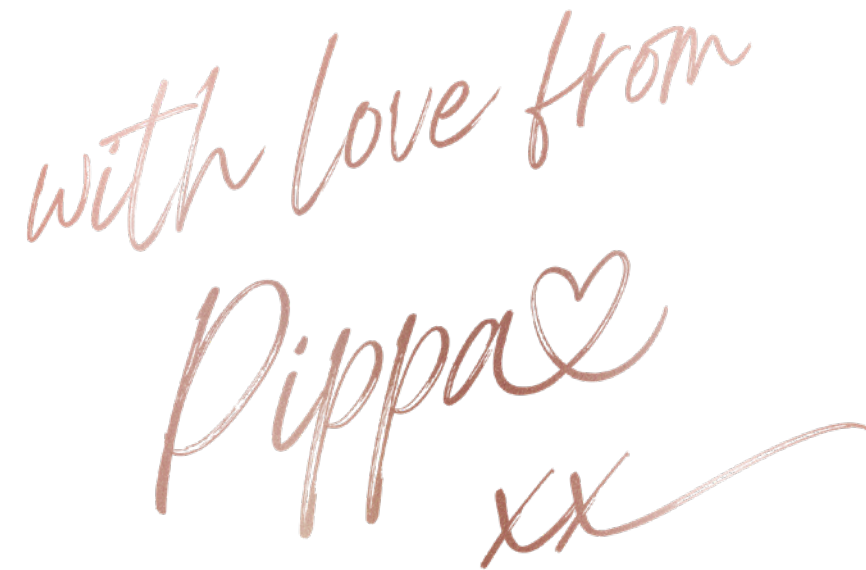 with love from
Pippa
xx